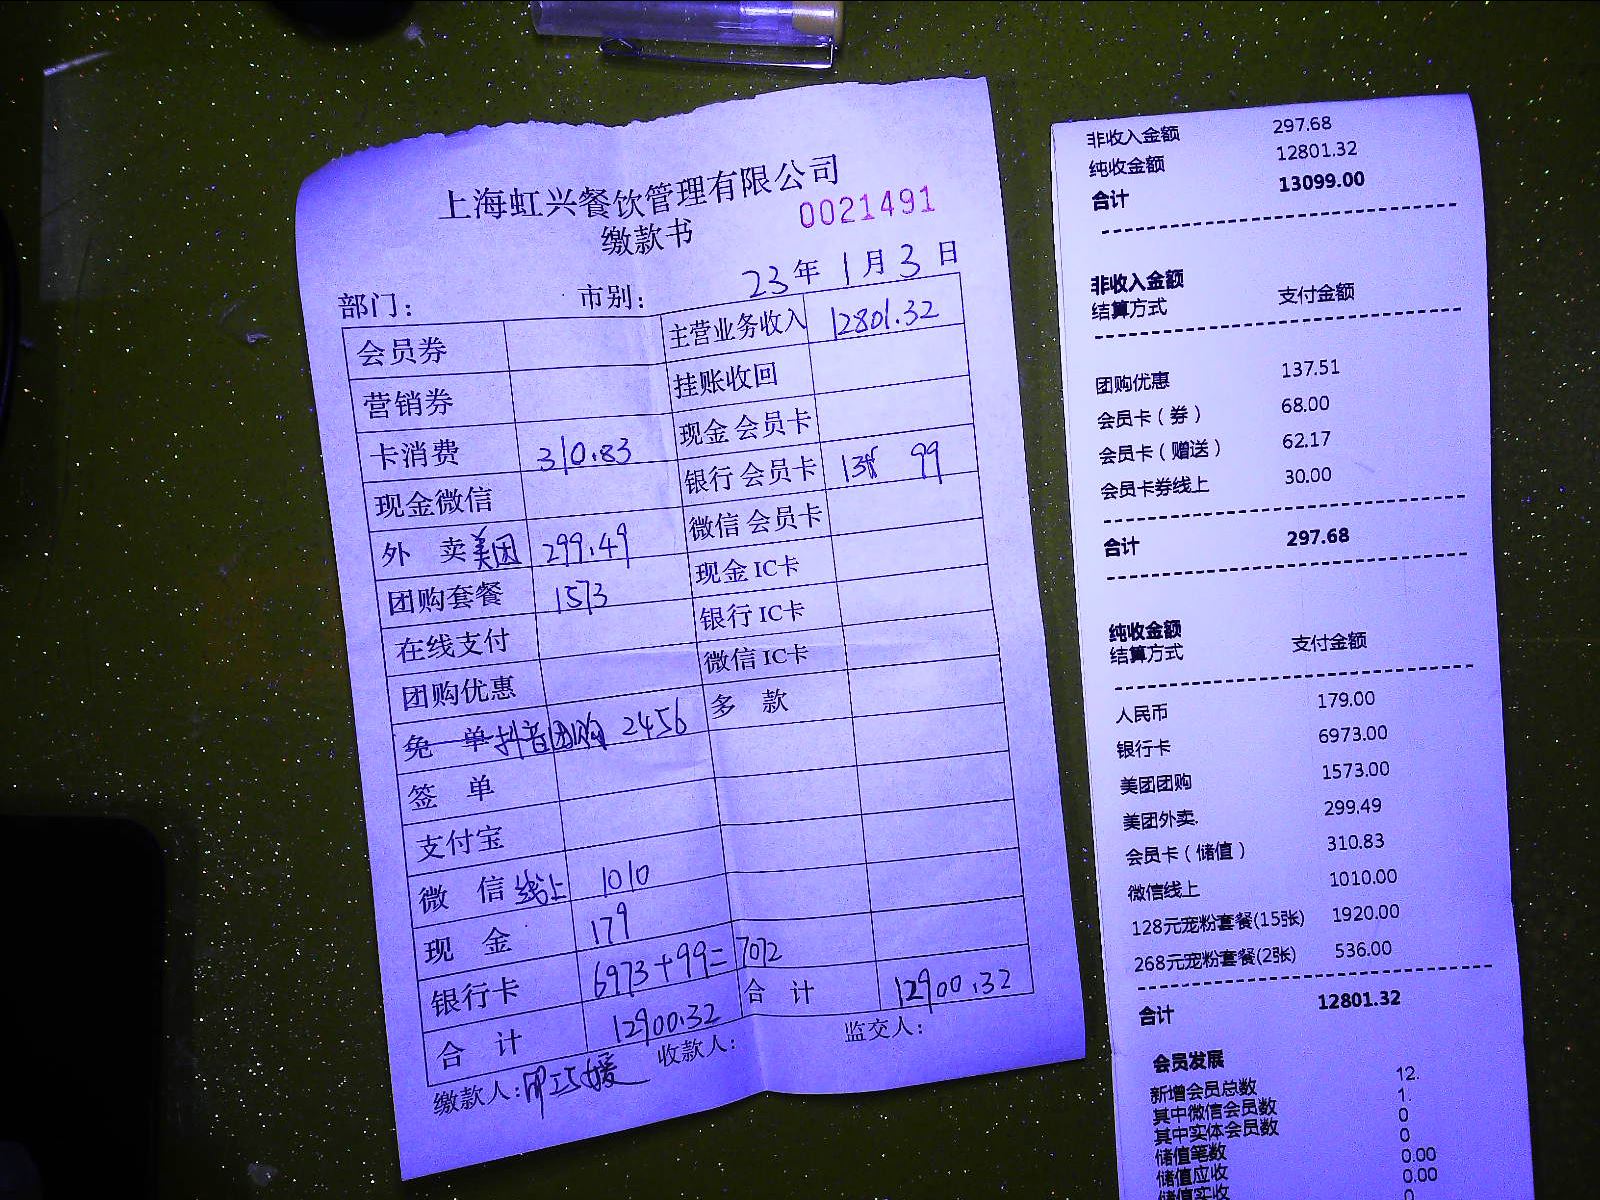 上海虹兴餐饮管理有限公司
缴款书
0021491
23年 1月 3日
部门：
市别：
会员券
主营业务收入 12801.32
营销券
挂账收回
卡消费 310.83
现金 会员卡
现金微信
银行 会员卡 99
外 卖美团 299.49
微信 会员卡
团购套餐 1573
现金 IC卡
在线支付
银行 IC卡
团购优惠
微信 IC卡
免 单抖音团购 2456
多 款
签 单
支付宝
微 信 线上 1010
现 金 179
银行卡 6973+99=7072
合 计 12900.32
合 计 12900.32
缴款人：
收款人：
监交人：
非收入金额 297.68
纯收金额 12801.32
合计 13099.00
非收入金额
结算方式 支付金额
团购优惠 137.51
会员卡（券） 68.00
会员卡（赠送） 62.17
会员卡券线上 30.00
合计 297.68
纯收金额
结算方式 支付金额
人民币 179.00
银行卡 6973.00
美团团购 1573.00
美团外卖. 299.49
会员卡（储值） 310.83
微信线上 1010.00
128元宠粉套餐(15张) 1920.00
268元宠粉套餐(2张) 536.00
合计 12801.32
会员发展
新增会员总数 12.
其中微信会员数 1.
其中实体会员数 0
储值笔数 0
储值应收 0.00
储值实收 0.00